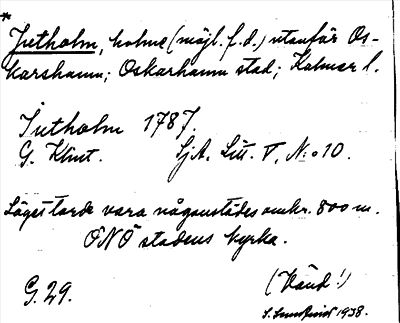 *
Jutholm, holme (möjl. f. d.) utanför Os-
karshamn; Oskarhamn stad; Kalmar l.
Jutholm 1787.
G. Klint. Sj.A. Litt. V, N:o 10.
Läget torde vara någonstädes omkr. 800 m.
ÖNÖ stadens kyrka.
G. 29. (Vänd!)
1938.